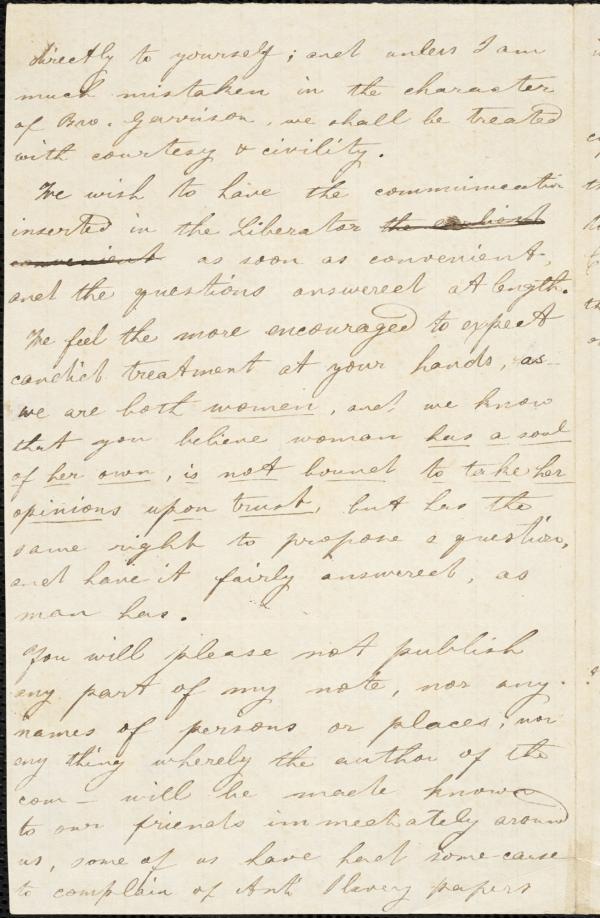 directly to yourself; and unless I am
much mistaken in the character
of Bro. Garrison, we shall be treated
with courtesy & civility.
We wish to have the communication
inserted in the Liberator the earliest
convenient as soon as convenient,
and the questions answered at length.
We feel the more encouraged to expect
candid treatment at your hands, as
we are both women, and we know
that you believe woman has a soul
of her own, is not bound to take her
opinions upon trust, but has the
same right to propose a question,
and have it fairly answered, as
man has.
You will please not publish
any part of my note, nor any
names of persons or places, nor
any thing whereby the author of the
com – will be made known
to our friends immediately around
us, some of us have had some cause
to complain of Anti Slavery papers